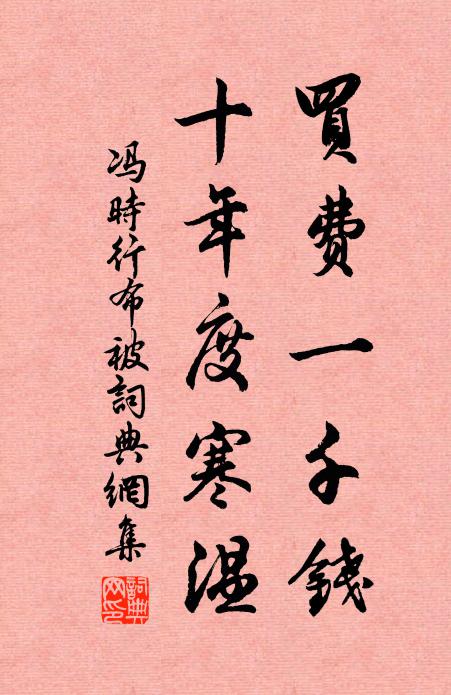 買費一千錢
十年度寒温
冯時行布被詞典網集
詞典
网印